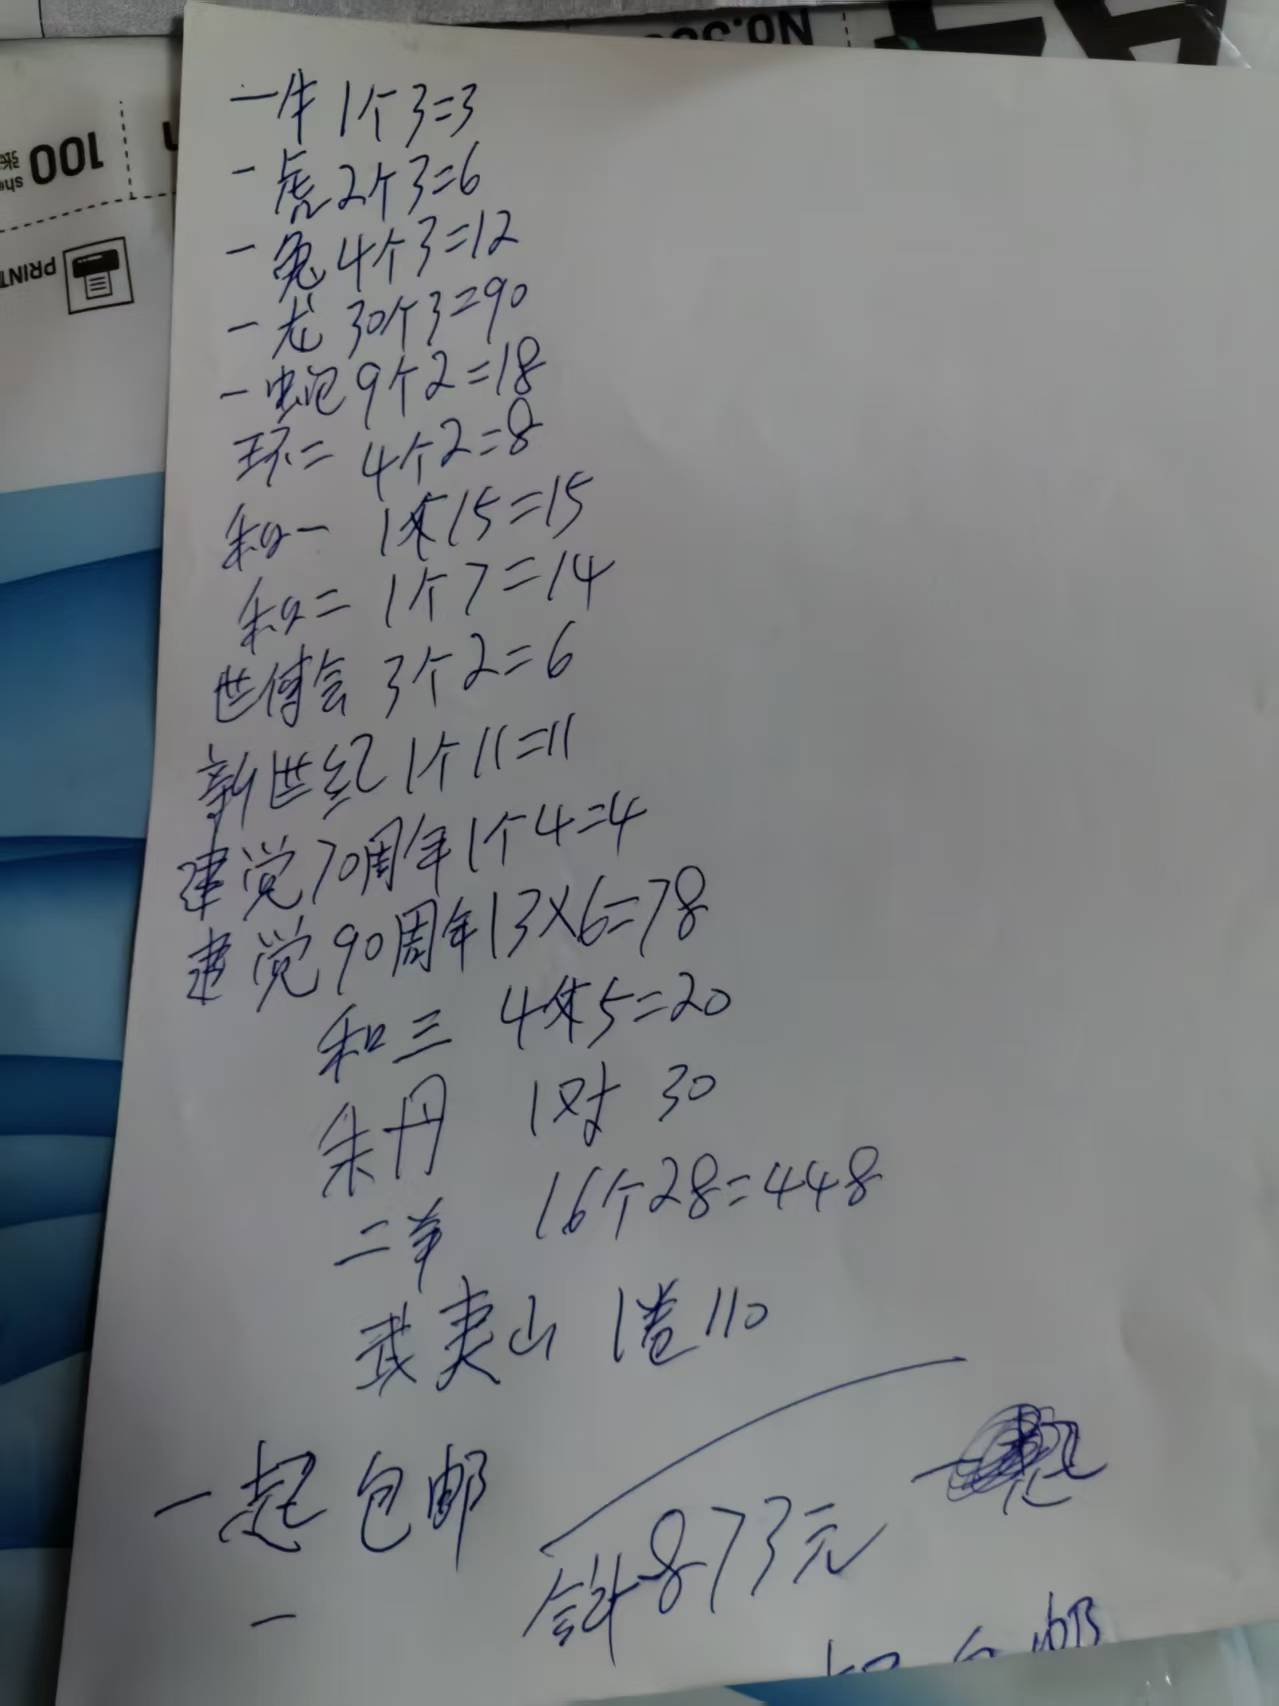 NO.
100
PRINT
一牛 1个3=3
一虎 2个3=6
一兔 4个3=12
一龙 30个3=90
一蛇 9个2=18
环二 4个2=8
和一 1枚15=15
和二 1个7=14
世博会 3个2=6
新世纪 1个11=11
建党70周年 1个4=4
建党90周年 13×6=78
和三 4枚5=20
朱丹 1对 30
二羊 16个28=448
武夷山 1卷 110
一起包邮
合计873元
一
包邮